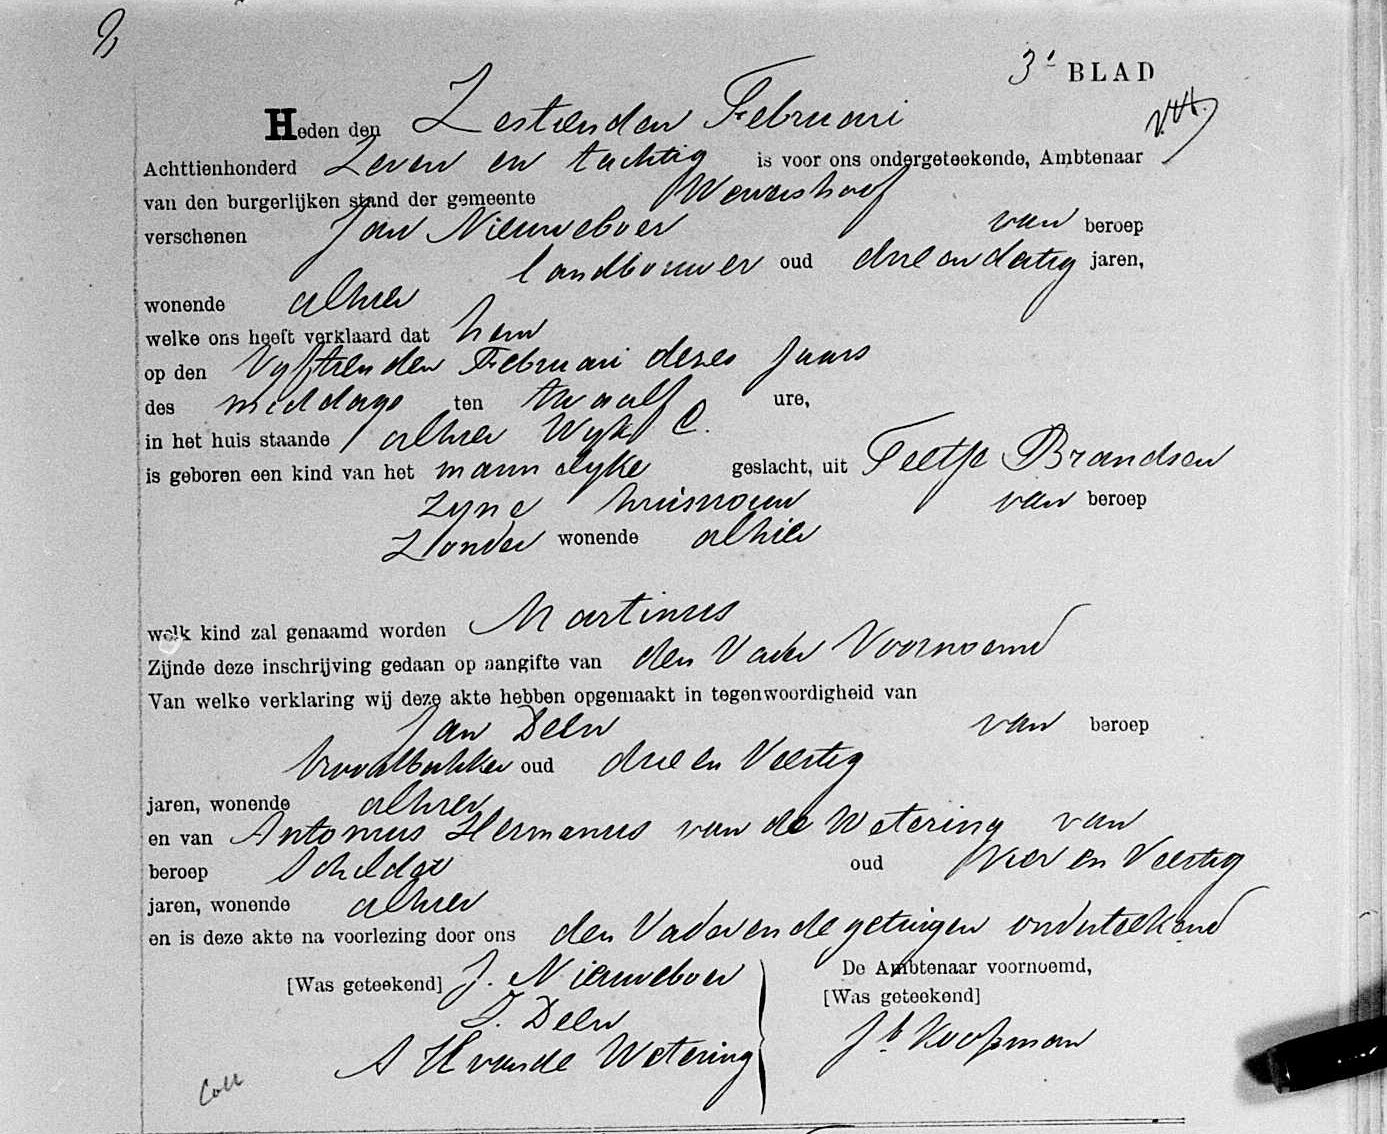 3e BLAD
Heden den Zestienden Februari
Achttienhonderd Zeven en tachtig is voor ons ondergeteekende, Ambtenaar
van den burgerlijken stand der gemeente Wervershoof
verschenen Jan Nieuweboer van beroep
landbouwer oud drie en dertig jaren,
wonende alhier
welke ons heeft verklaard dat hem
op den Vyftienden Februari dezes jaars
des middags ten twaalf ure,
in het huis staande alhier Wyk C.
is geboren een kind van het mannelyke geslacht, uit Teetje Brandsen
zyne huisvrouw van beroep
Zonder wonende alhier
welk kind zal genaamd worden Martinus
Zijnde deze inschrijving gedaan op aangifte van den Vader Voornoemd
Van welke verklaring wij deze akte hebben opgemaakt in tegenwoordigheid van
Jan Deen van beroep
broodbakker oud drie en Veertig
jaren, wonende alhier
en van Antonius Hermanus van de Wetering van
beroep Schilder oud Vier en Veertig
jaren, wonende alhier
en is deze akte na voorlezing door ons den Vader en de getuigen onderteekend
[Was geteekend] J. Nieuweboer De Ambtenaar voornoemd,
J. Deen [Was geteekend]
A H van de Wetering Jb Koopman
Coll